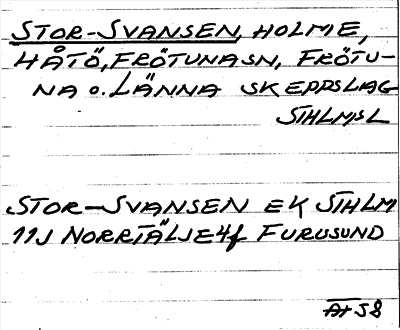 STOR-SVANSEN, HOLME,
HÅTÖ, FRÖTUNA SN, FRÖTU-
NA o. LÄNNA SKEPPSLAG
STHLMS L
STOR-SVANSEN EK STHLM
11J NORRTÄLJE 4f FURUSUND
AH 58